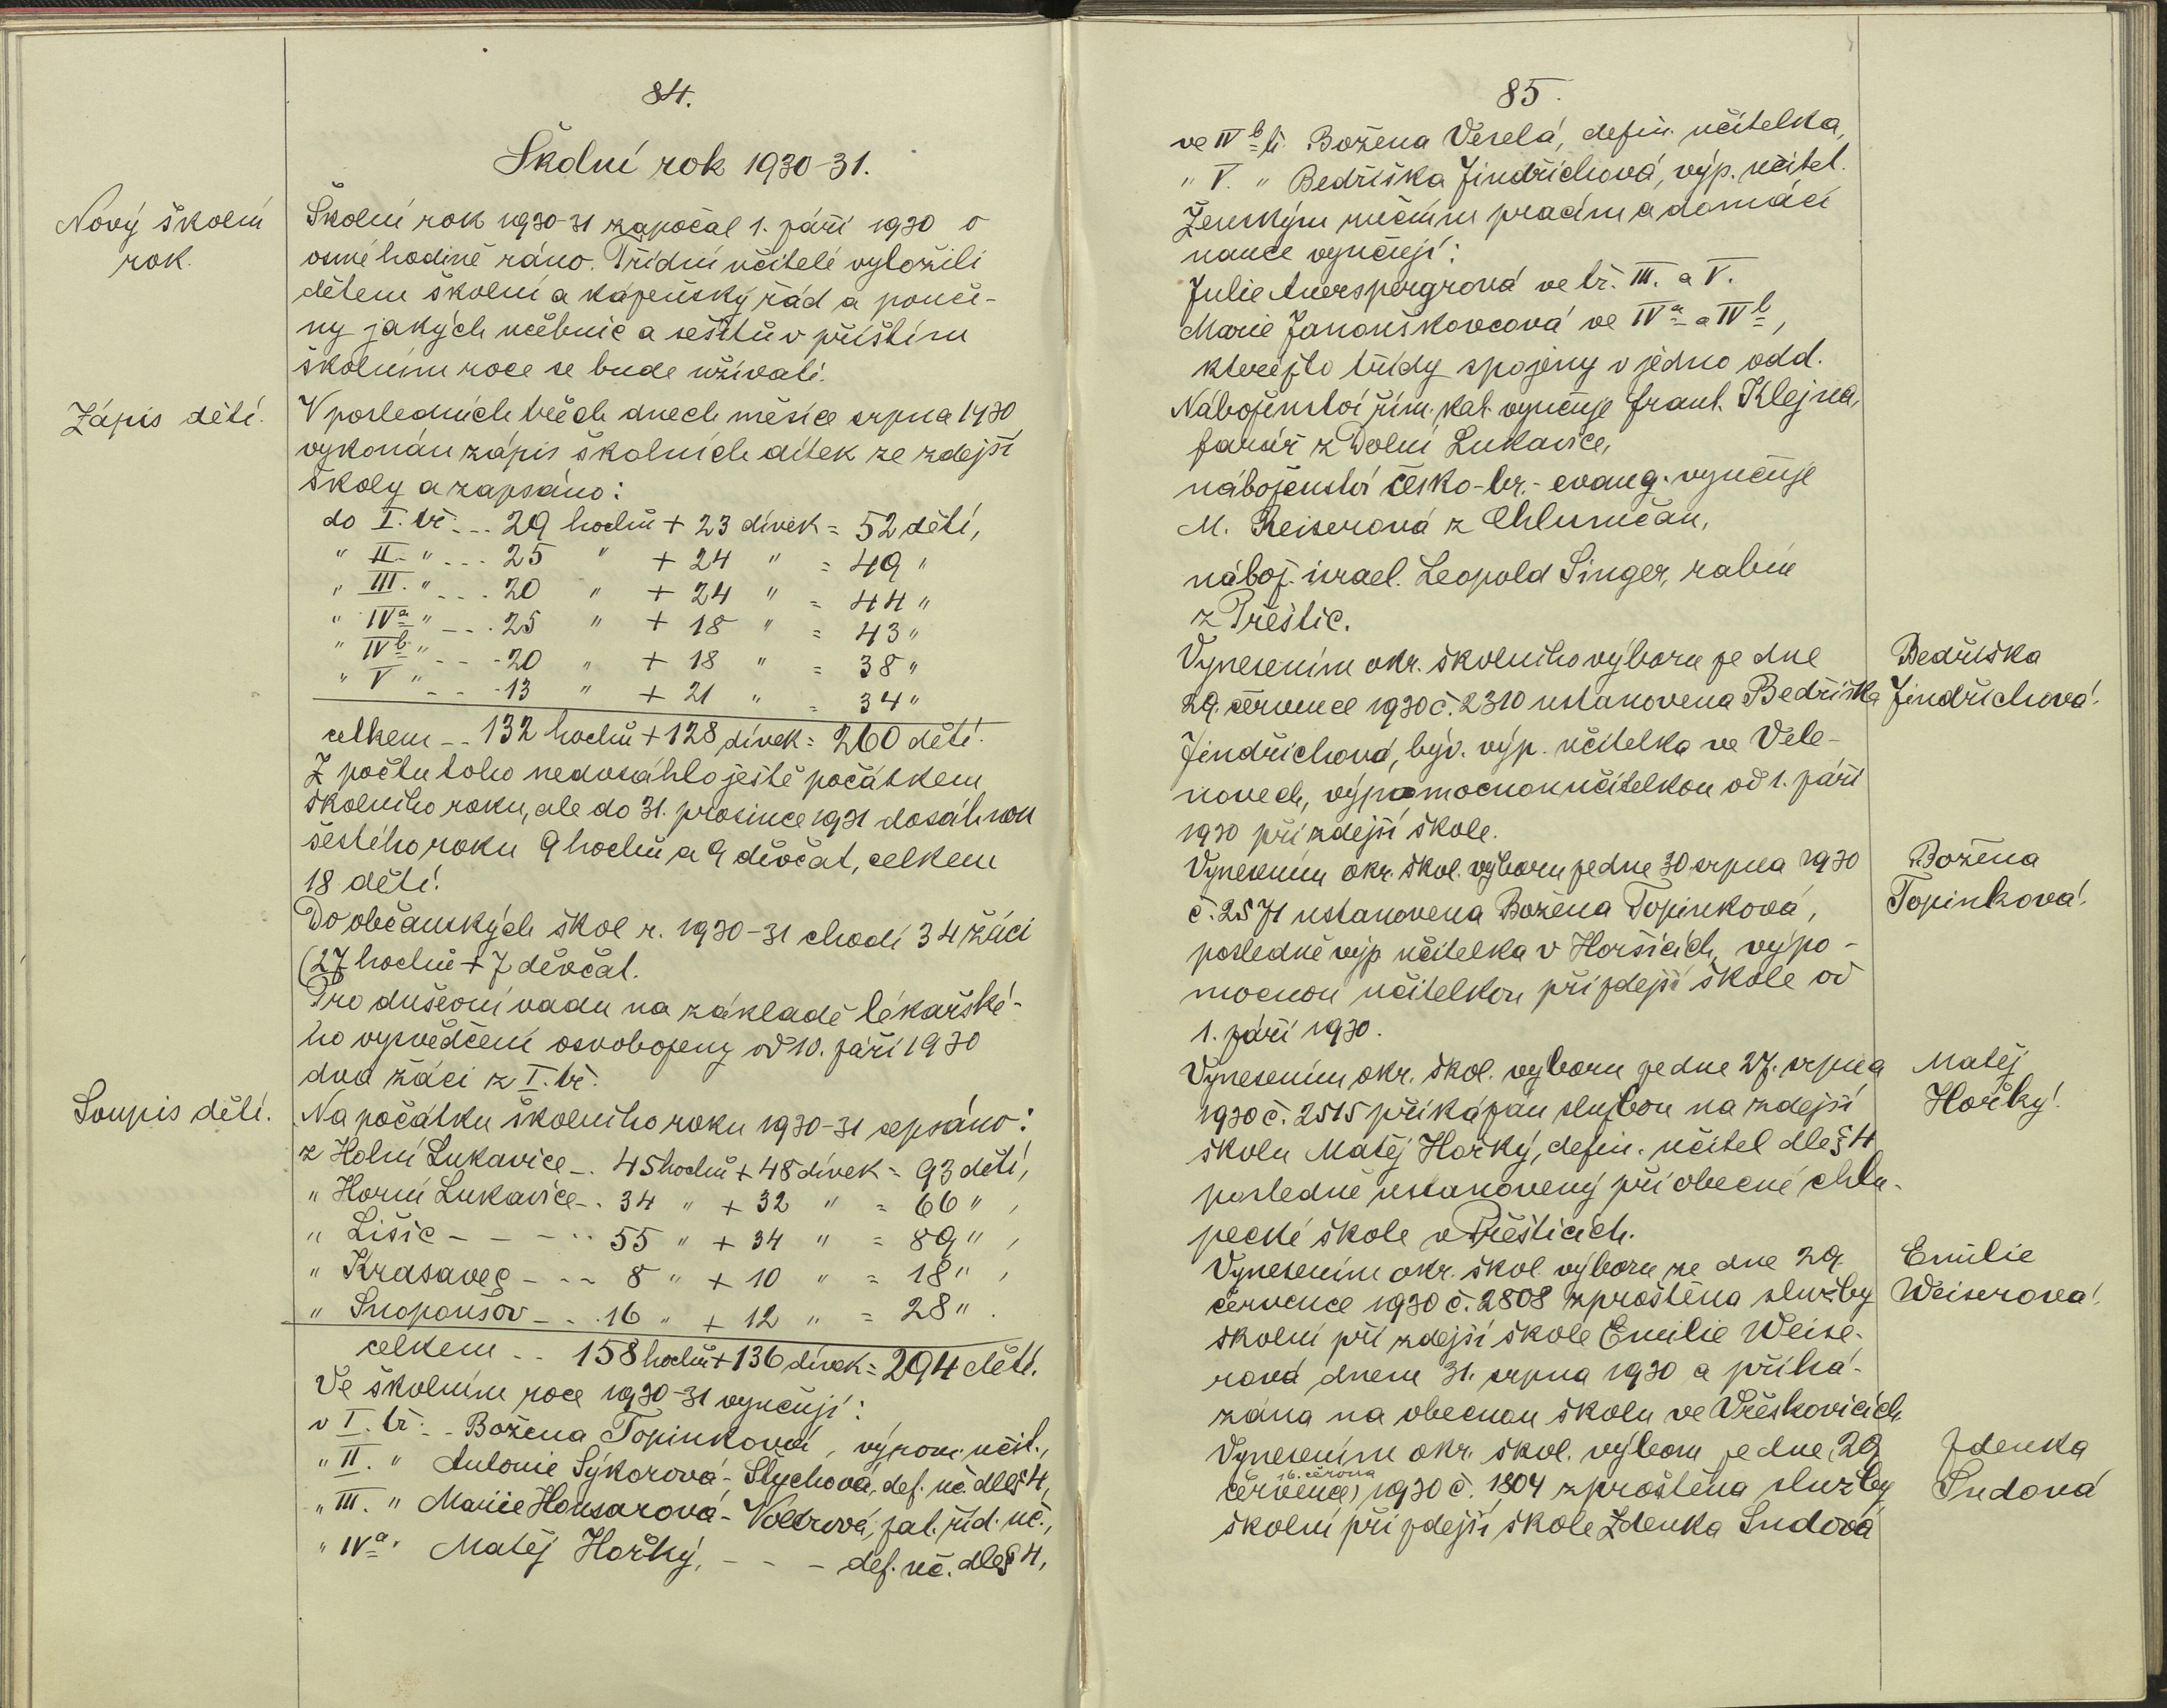 84.
Školní rok 1930-31.
Nový školní
rok.
Školní rok 1930-31 započal 1. září 1930 o
osmé hodině ráno. Třídní učitelé vyložili
dětem školní a kázeňský řád a pouče-
ny jakých učebnic a sešitů v příštím
školním roce se bude užívati.
Zápis dětí.
V posledních třech dnech měsíce srpna 1930
vykonán zápis školních dítek ze zdejší
školy a zapsáno:
do I. tř. - - 29 hochů + 23 dívek = 52 dětí,
" II. " - - - 25 " + 24 " = 49 "
" III. " - - - 20 " + 24 " = 44 "
" IVa " - - - 25 " + 18 " = 43 "
" IVb " - - - 20 " + 18 " = 38 "
" V " - - - 13 " + 21 " = 34 "
celkem - - 132 hochů + 128 dívek = 260 dětí.
Z počtu toho nedosáhlo ještě počátkem
školního roku, ale do 31. prosince 1931 dosáhnou
šestého roku 9 hochů a 9 děvčat, celkem
18 dětí.
Do občanských škol r. 1930-31 chodí 34 žáci
(27 hochů + 7 děvčat.
Pro duševní vadu na základě lékařské-
ho vysvědčení osvobozeny od 10. září 1930
dva žáci z I. tř.
Soupis dětí.
Na počátku školního roku 1930-31 sepsáno:
z Holní Lukavice - . 45 hochů + 48 dívek = 93 dětí,
" Horní Lukavice - . 34 " + 32 " = 66 " ,
" Lišic - - - - . . 55 " + 34 " = 89 " ,
" Krasavec - - - 8 " + 10 " = 18 " ,
" Snopoušov - - . 16 " + 12 " = 28 " .
celkem - - 158 hochů + 136 dívek = 294 dětí.
Ve školním roce 1930-31 vyučují:
v I. tř. - - Božena Topinková, výpom. učit.,
" II. " Antonie Sýkorová - Stychová, def. uč. dle § 4,
" III. " Marie Housarová - Voldrová, zat. říd. uč.,
" IVa " Matěj Hořký, - - - def. uč. dle § 4,
85.
ve IVb tř. Božena Veselá, defin. učitelka,
" V. " Bedřiška Jindřichová, výp. učitel.
Ženským ručním pracím a domácí
nauce vyučují:
Julie Auerspergrová ve tř. III. a V.
Marie Janouškovcová ve IVa a IVb,
kteréžto třídy spojeny v jedno odd.
Náboženství řím. kat. vyučuje frant. Klejna,
farář z Dolní Lukavice,
náboženství česko-br.-evang. vyučuje
M. Reiserová z Chlumčan,
nábož. israel. Leopold Singer, rabín
z Přeštic.
Vynesením okr. školního výboru ze dne
29. července 1930 č. 2310 ustanovena Bedřiška
Jindřichová, býv. výp. učitelka ve Vele-
novech, výpomocnou učitelkou od 1. září
1930 při zdejší škole.
Bedřiška
Jindřichová.
Vynesením okr. škol. výboru ze dne 30 srpna 1930
č. 2571 ustanovena Božena Topinková,
posledně výp. učitelka v Horšicích, výpo-
mocnou učitelkou při zdejší škole od
1. září 1930.
Božena
Topinková.
Vynesením okr. škol. výboru ze dne 27. srpna
1930 č. 2515 přikázán službou na zdejší
školu Matěj Hořký, defin. učitel dle § 4
posledně ustanovený při obecné chla-
pecké škole v Přešticích.
Matěj
Hořký.
Vynesením okr. škol. výboru ze dne 29.
července 1930 č. 2808 zproštěna služby
školní při zdejší škole Emilie Weise-
rová dnem 31. srpna 1930 a přiká-
zána na obecnou školu ve Vřeskovicích
Emilie
Weiserová.
Vynesením okr. škol. výboru ze dne (29
16. června
července) 1930 č. 1804 zproštěna služby
školní při zdejší škole Zdenka Sudová
Zdenka
Sudová